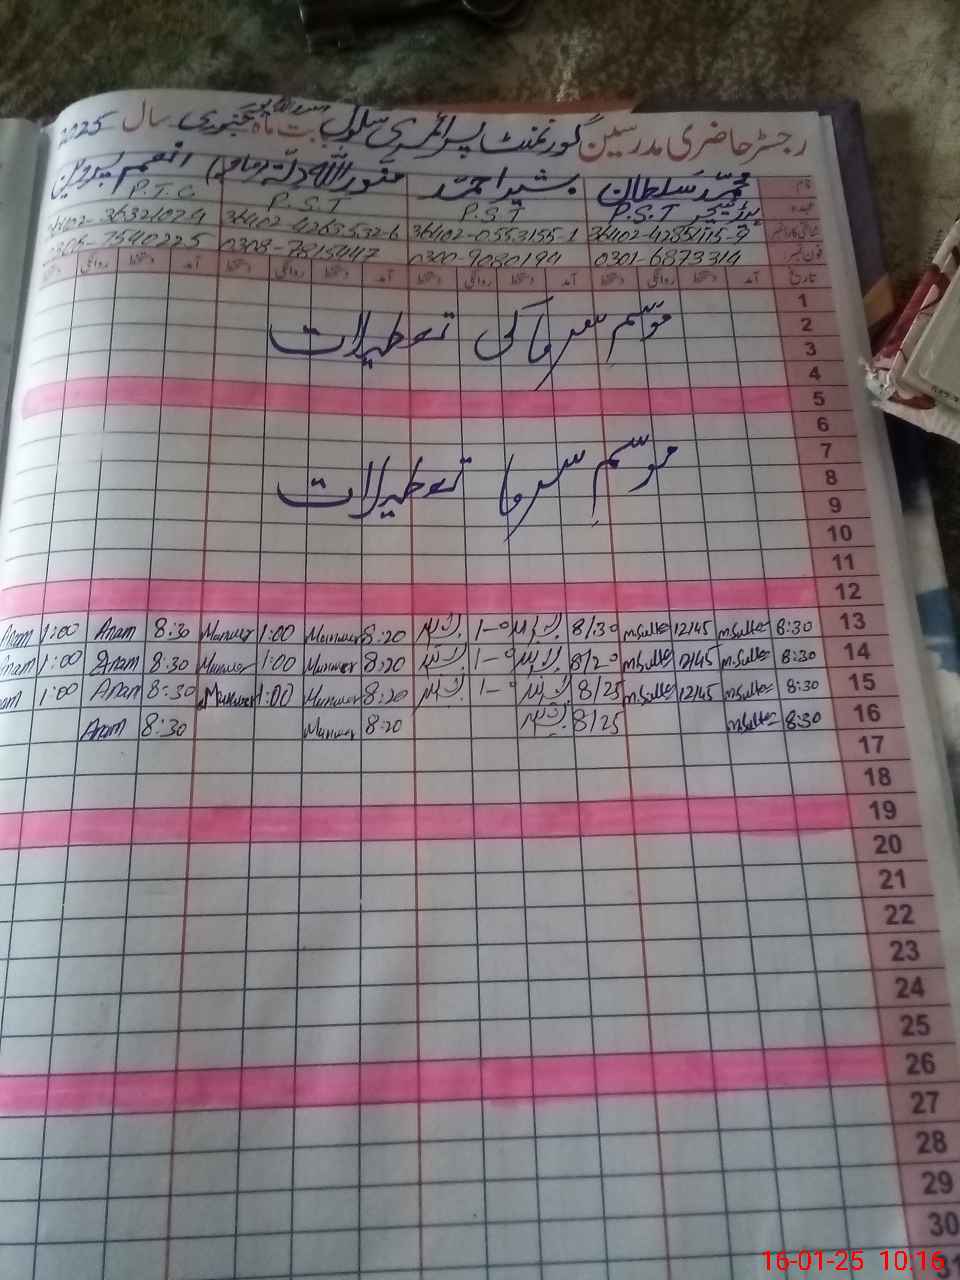 رجسٹر حاضری مدرسین گورنمنٹ پرائمری سکول بابت ماہ جنوری سال 2025
نام محمد سلطان بشیر احمد منور اللہ دتہ انعم پروین
عہدہ P.S.T P.S.T P.S.T P.T.C
شناختی کارڈ نمبر 36402-4285115-9 36402-0553155-1 36402-4265532-6
فون نمبر 0301-6873314 0300-9080194 0308-7815447 0306-7540225
تاریخ آمد دستخط روانگی دستخط آمد دستخط روانگی دستخط آمد دستخط روانگی دستخط آمد دستخط روانگی دستخط
1
2 موسم سرما کی تعطیلات
3
4
5
6
7
8 موسم سرما تعطیلات
9
10
11
12
13 8:30 M.Sultan 12/45 M.Sultan 8/30 بشیر 1-0 بشیر 8:20 Manwer 1:00 Manwer 8:30 Anam 1:00 Anam
14 8:30 M.Sultan 12/45 M.Sultan 8/20 بشیر 1-0 بشیر 8:20 Manwer 1:00 Manwer 8:30 Anam 1:00 Anam
15 8:30 M.Sultan 12/45 M.Sultan 8/25 بشیر 1-0 بشیر 8:20 Manwer 1:00 Manwer 8:30 Anam 1:00 Anam
16 8:30 M.Sultan 8/25 بشیر 8:20 Manwer 8:30 Anam
17
18
19
20
21
22
23
24
25
26
27
28
29
30
31
16-01-25 10:16